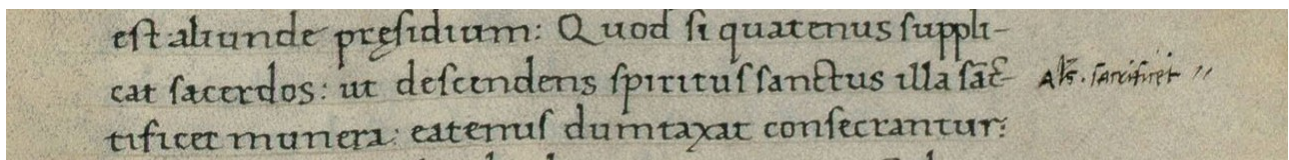 est aliunde pręsidium: Quod si quatenus suppli-
cat sacerdos: ut descendens spiritus sanctus illa sāc-
tificet munera: eatenus dumtaxat consecrantur: